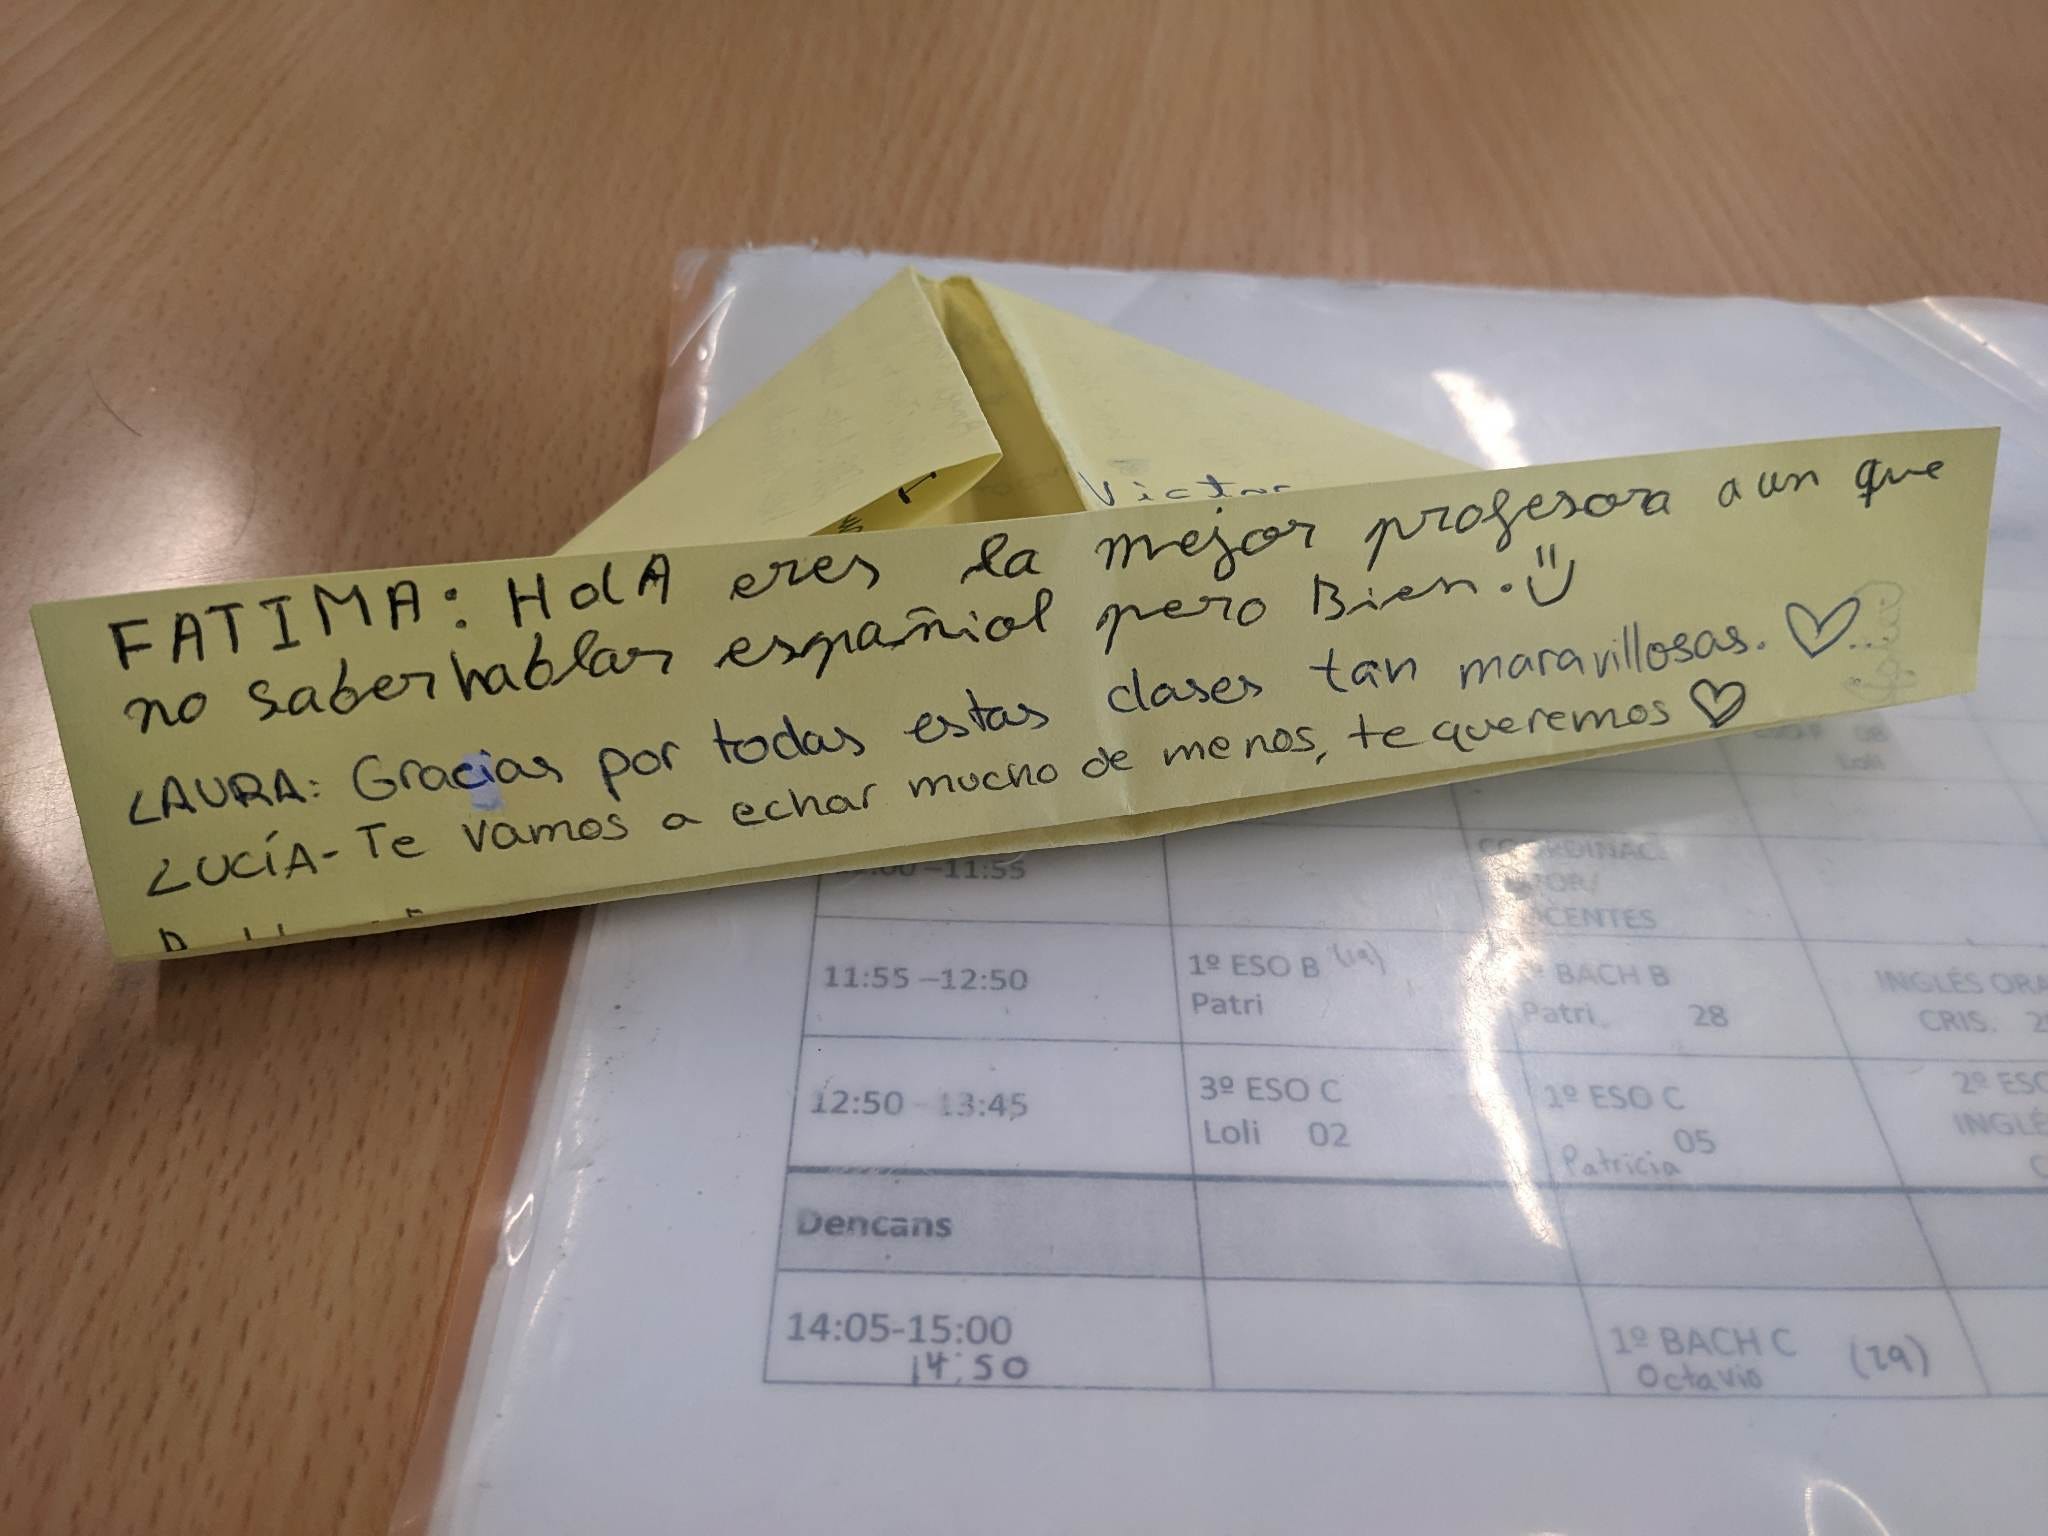 Victor
FATIMA: HolA eres la mejor profesora aun que
no saber hablar españiol pero Bien.
LAURA: Gracias por todas estas clases tan maravillosas.
LUCÍA- Te vamos a echar mucho de menos, te queremos
08
Loli
-11:55
CENTES
11:55 –12:50
1º ESO B (1a)
Patri
BACH B
Patri 28
INGLÉS ORA
CRIS.
12:50 - 13:45
3º ESO C
Loli 02
1º ESO C
05
Patricia
2º ESO
INGLÉ
Dencans
14:05-15:00
14:50
1º BACH C (1a)
Octavio